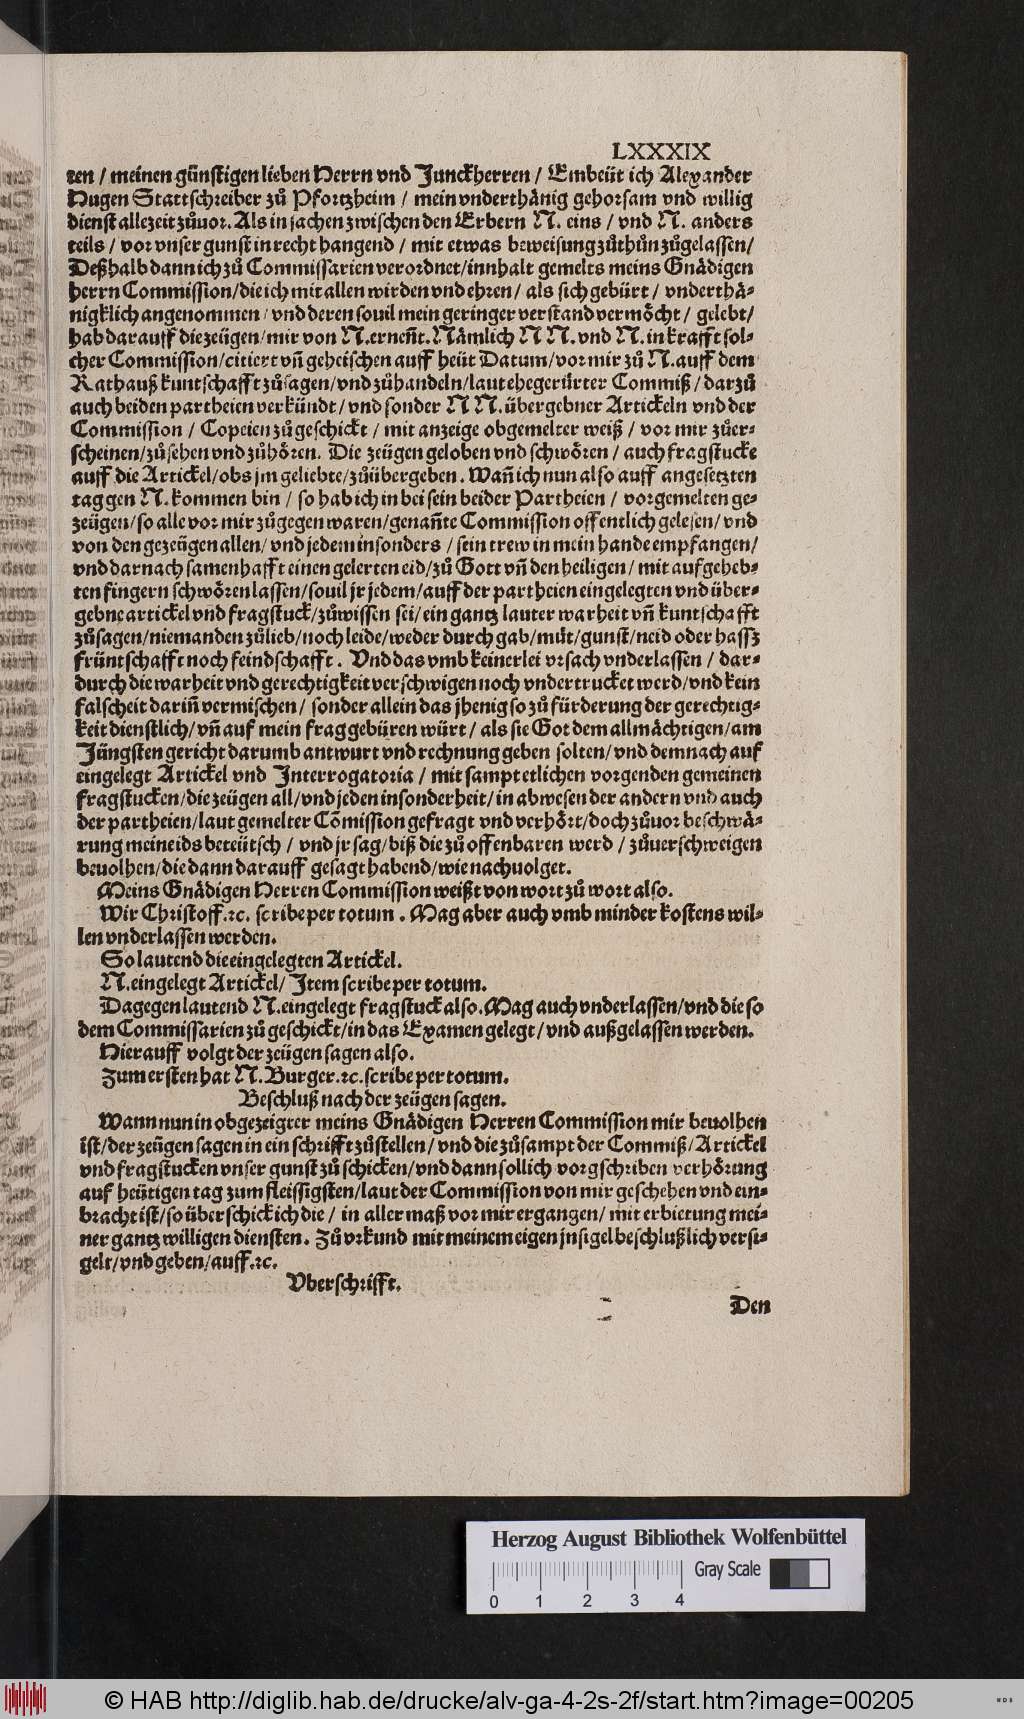 LXXXIX
ten / meinen günstigen lieben Herrn vnd Junckherren / Embeüt ich Alexander
Hugen Stattschreiber zů Pfortzheim / mein vnderthänig gehorsam vnd willig
dienst allezeit zůuor. Als in sachen zwischen den Erbern N. eins / vnd N. anders
teils / vor vnser gunst in recht hangend / mit etwas beweisung zůthůn zůgelassen/
Deßhalb dann ich zů Commissarien verordnet/innhalt gemelts meins Gnädigen
herrn Commission/die ich mit allen wirden vnd ehren/ als sich gebürt / vnderthä⸗
nigklich angenommen / vnd deren souil mein geringer verstand vermöcht / gelebt/
hab darauff die zeügen/mir von N.ernent̄.Nämlich N N. vnd N. in krafft sol⸗
cher Commission/citiert vn̄ geheischen auff heüt Datum/vor mir zů N.auff dem
Rathauß kuntschafft zůsagen/vnd zůhandeln/laut ehegerürter Commiß / darzů
auch beiden partheien verkündt/vnd sonder N N. übergebner Artickeln vnd der
Commission / Copeien zůgeschickt / mit anzeige obgemelter weiß / vor mir zůer⸗
scheinen/zůsehen vnd zůhören. Die zeügen geloben vnd schwören / auch fragstucke
auff die Artickel/obs jm geliebte/zůübergeben. Wan̄ ich nun also auff angesetzten
tag gen N. kommen bin / so hab ich in bei sein beider Partheien / vorgemelten ge⸗
zeügen/so alle vor mir zůgegen waren/genan̄te Commission offentlich gelesen/vnd
von den gezeügen allen/vnd jedem insonders / sein trew in mein hande empfangen/
vnd darnach samenhafft einen gelerten eid/zů Gott vn̄ den heiligen / mit aufgeheb⸗
ten fingern schwören lassen/souil jr jedem/auff der partheien eingelegten vnd über⸗
gebne artickel vnd fragstuck/zůwissen sei/ein gantz lauter warheit vn̄ kuntschafft
zůsagen/niemanden zůlieb/noch leide/weder durch gab/müt/gunst/neid oder hassz
früntschafft noch feindschafft. Vnd das vmb keinerlei vrsach vnderlassen / dar⸗
durch die warheit vnd gerechtigkeit verschwigen noch vndertrucket werd/vnd kein
falscheit darin̄ vermischen / sonder allein das jhenig so zů fürderung der gerechtig⸗
keit dienstlich/vn̄ auf mein frag gebüren würt / als sie Got dem allmächtigen/am
Jüngsten gericht darumb antwurt vnd rechnung geben solten/vnd demnach auf
eingelegt Artickel vnd Interrogatoria / mit sampt etlichen vorgenden gemeinen
fragstucken/die zeügen all/vnd jeden insonderheit/in abwesen der andern vnd auch
der partheien/laut gemelter Cōmission gefragt vnd verhört/doch zůuor beschwä⸗
rung meineids beteütsch / vnd jr sag/biß die zů offenbaren werd / zůuerschweigen
beuolhen/die dann darauff gesagt habend/wie nachuolget.
Meins Gnädigen Herren Commission weißt von wort zů wort also.
Wir Christoff.ꝛc. scribe per totum . Mag aber auch vmb minder kostens wil⸗
len vnderlassen werden.
So lautend die eingelegten Artickel.
N.eingelegt Artickel/ Item scribe per totum.
Dagegen lautend N.eingelegt fragstuck also.Mag auch vnderlassen/vnd die so
dem Commissarien zů geschickt/in das Examen gelegt/vnd außgelassen werden.
Hierauff volgt der zeügen sagen also.
Zum ersten hat N. Burger.ꝛc.scribe per totum.
Beschluß nach der zeügen sagen.
Wann nun in obgezeigter meins Gnädigen Herren Commission mir beuolhen
ist/der zeügen sagen in ein schrifft zůstellen / vnd die zůsampt der Commiß/Artickel
vnd fragstucken vnser gunst zů schicken/vnd dann sollich vorgschriben verhörung
auf heütigen tag zum fleissigsten/laut der Commission von mir geschehen vnd ein⸗
bracht ist/so überschick ich die / in aller maß vor mir ergangen/ mit erbietung mei⸗
ner gantz willigen diensten. Zů vrkund mit meinem eigen jnsigel beschlußlich versi⸗
gelt/vnd geben/auff.ꝛc.
Vberschrifft.
Den
Herzog August Bibliothek Wolfenbüttel
Gray Scale
0 1 2 3 4
© HAB http://diglib.hab.de/drucke/alv-ga-4-2s-2f/start.htm?image=00205